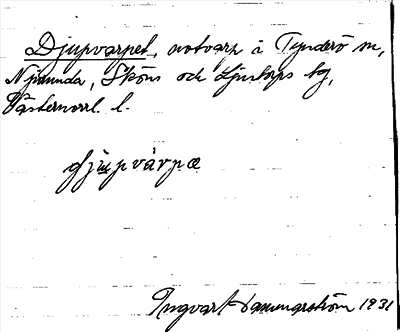 Djupvarpet, notvarp å Tynderö sn,
Njurunda, Sköns och Ljustorps tg,
Västernorrl. l.
djupvárpæ
Ingvar Hammarström 1931